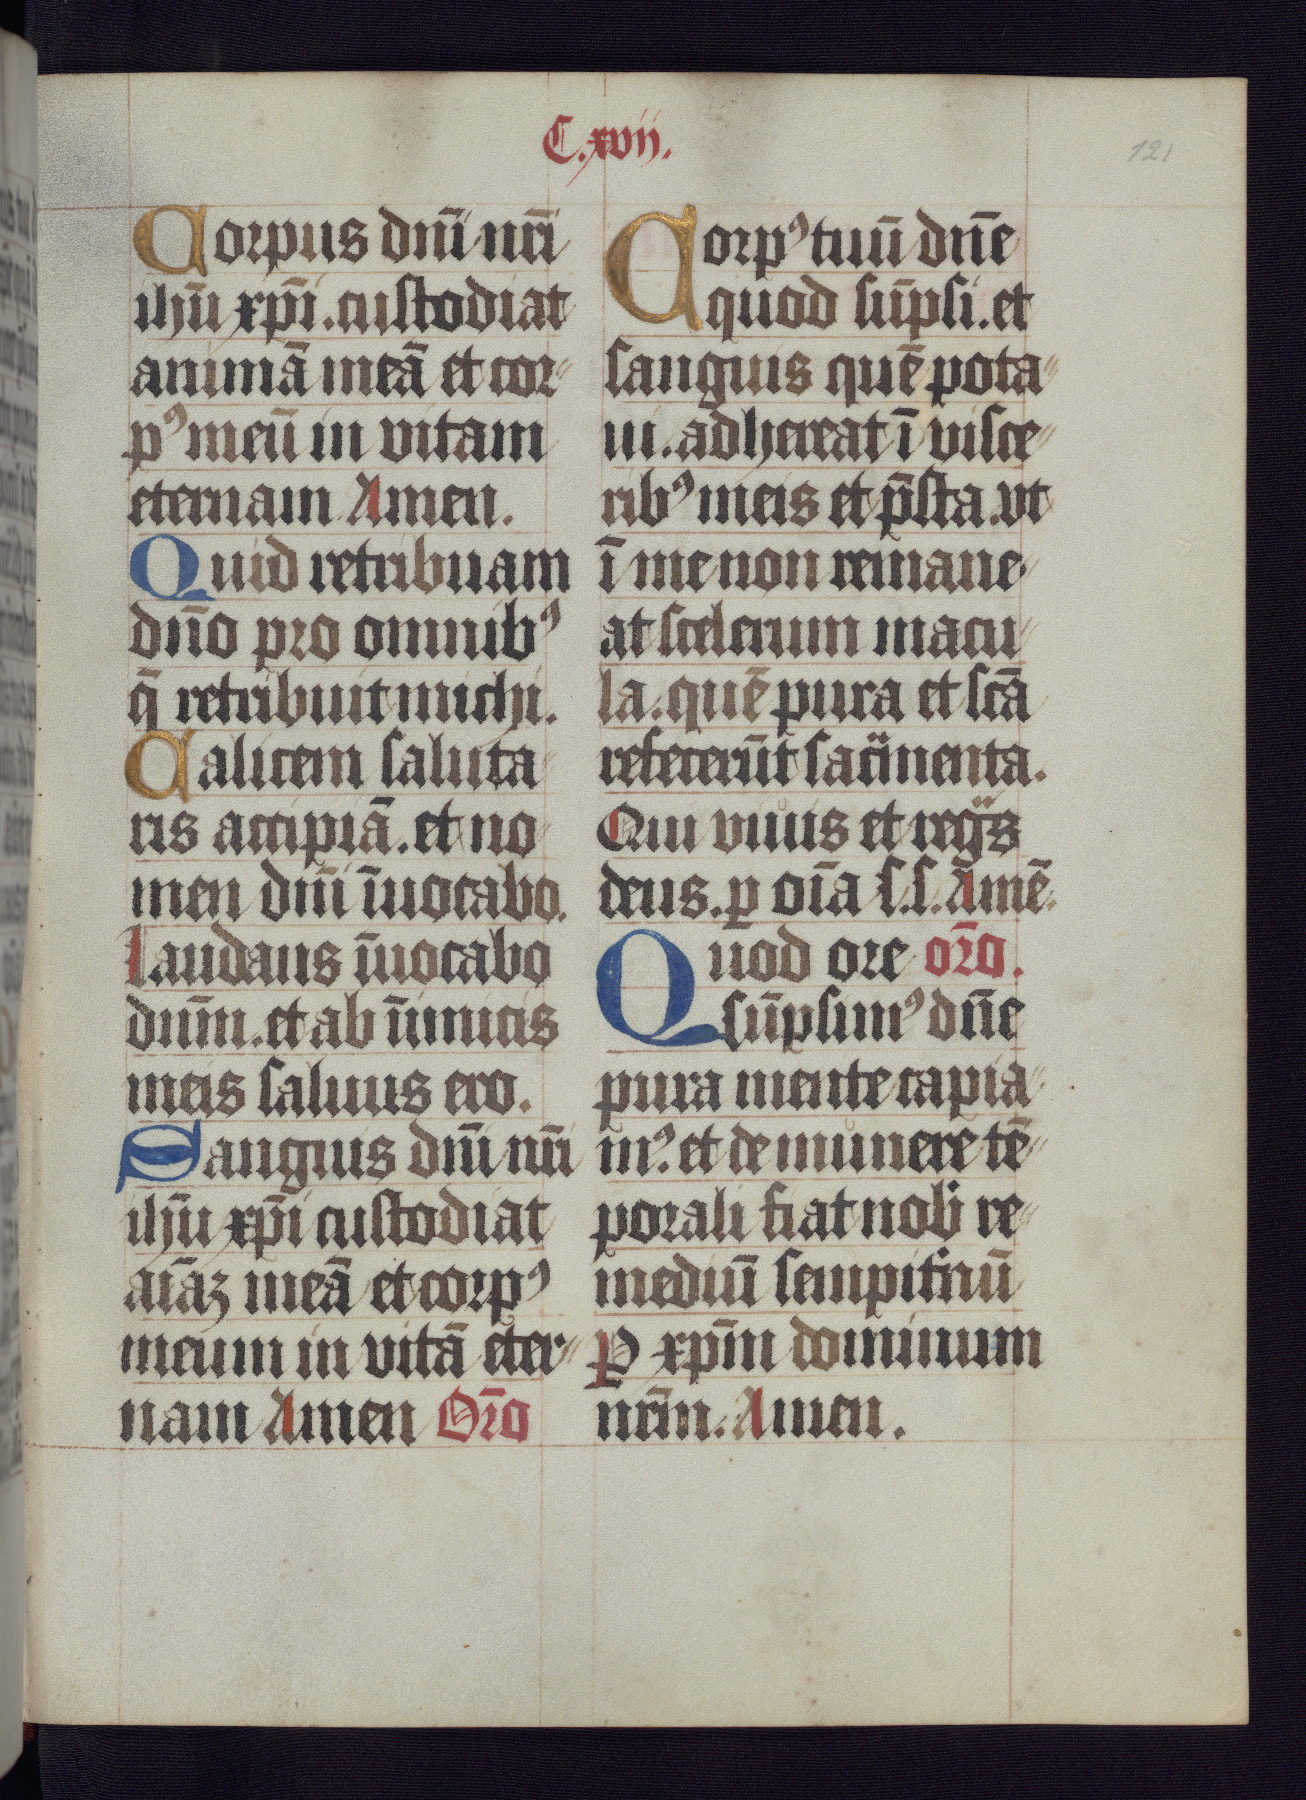 C.xvij.
121
Corpus dn̄i nr̄i
ihū xp̄i. custodiat
animā meā et cor-
pꝰ meū in vitam
eternam Amen.
Quid retribuam
dn̄o pro omnibꝰ
q̄ retribuit michi.
Calicem saluta-
ris accipiā. et no-
men dn̄i īuocabo.
Laudans īuocabo
dn̄m. et ab īimicis
meis saluus ero.
Sanguis dn̄i nr̄i
ihū xp̄i custodiat
aīaꝫ meā et corpꝰ
meum in vitā eter-
nam Amen Orō
Corpꝰ tuū dn̄e
quod sūpsi. et
sanguis quē pota-
ui. adhereat ī visce-
ribꝰ meis et p̄sta. vt
ī me non remane-
at scelerum macu-
la. quē pura et sc̄a
refecerūt sac̄menta.
Qui viuis et regͣs
deus. ꝑ oīa s.s. Amē.
Quod ore orō.
sūpsimꝰ dn̄e
pura mente capia-
mꝰ. et de munere tē-
porali fiat nob̄ re-
mediū sempit̄nū
P xp̄m dominum
nr̄m. Amen.